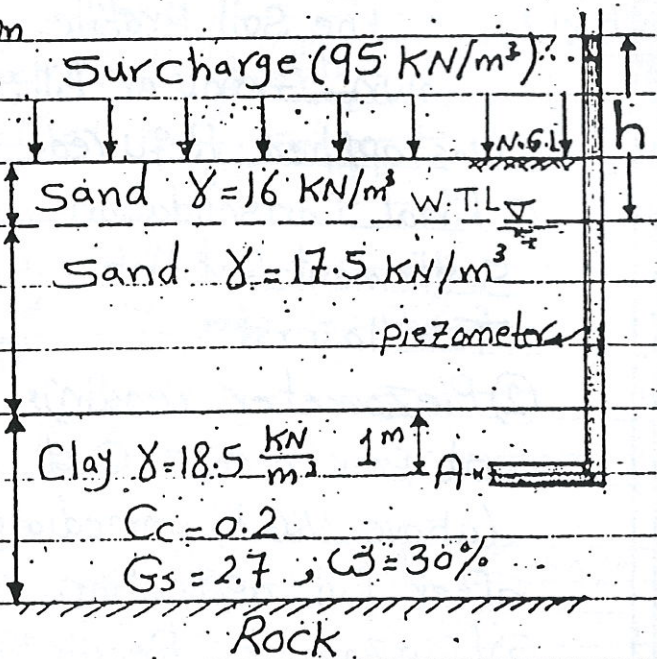 m
Surcharge (95 KN/m³)
h
N.G.L
Sand γ=16 KN/m³ W.T.L
Sand γ=17.5 KN/m³
piezometer
Clay γ=18.5 KN/m³ 1m A
Cc=0.2
Gs=2.7 ; ω=30%
Rock